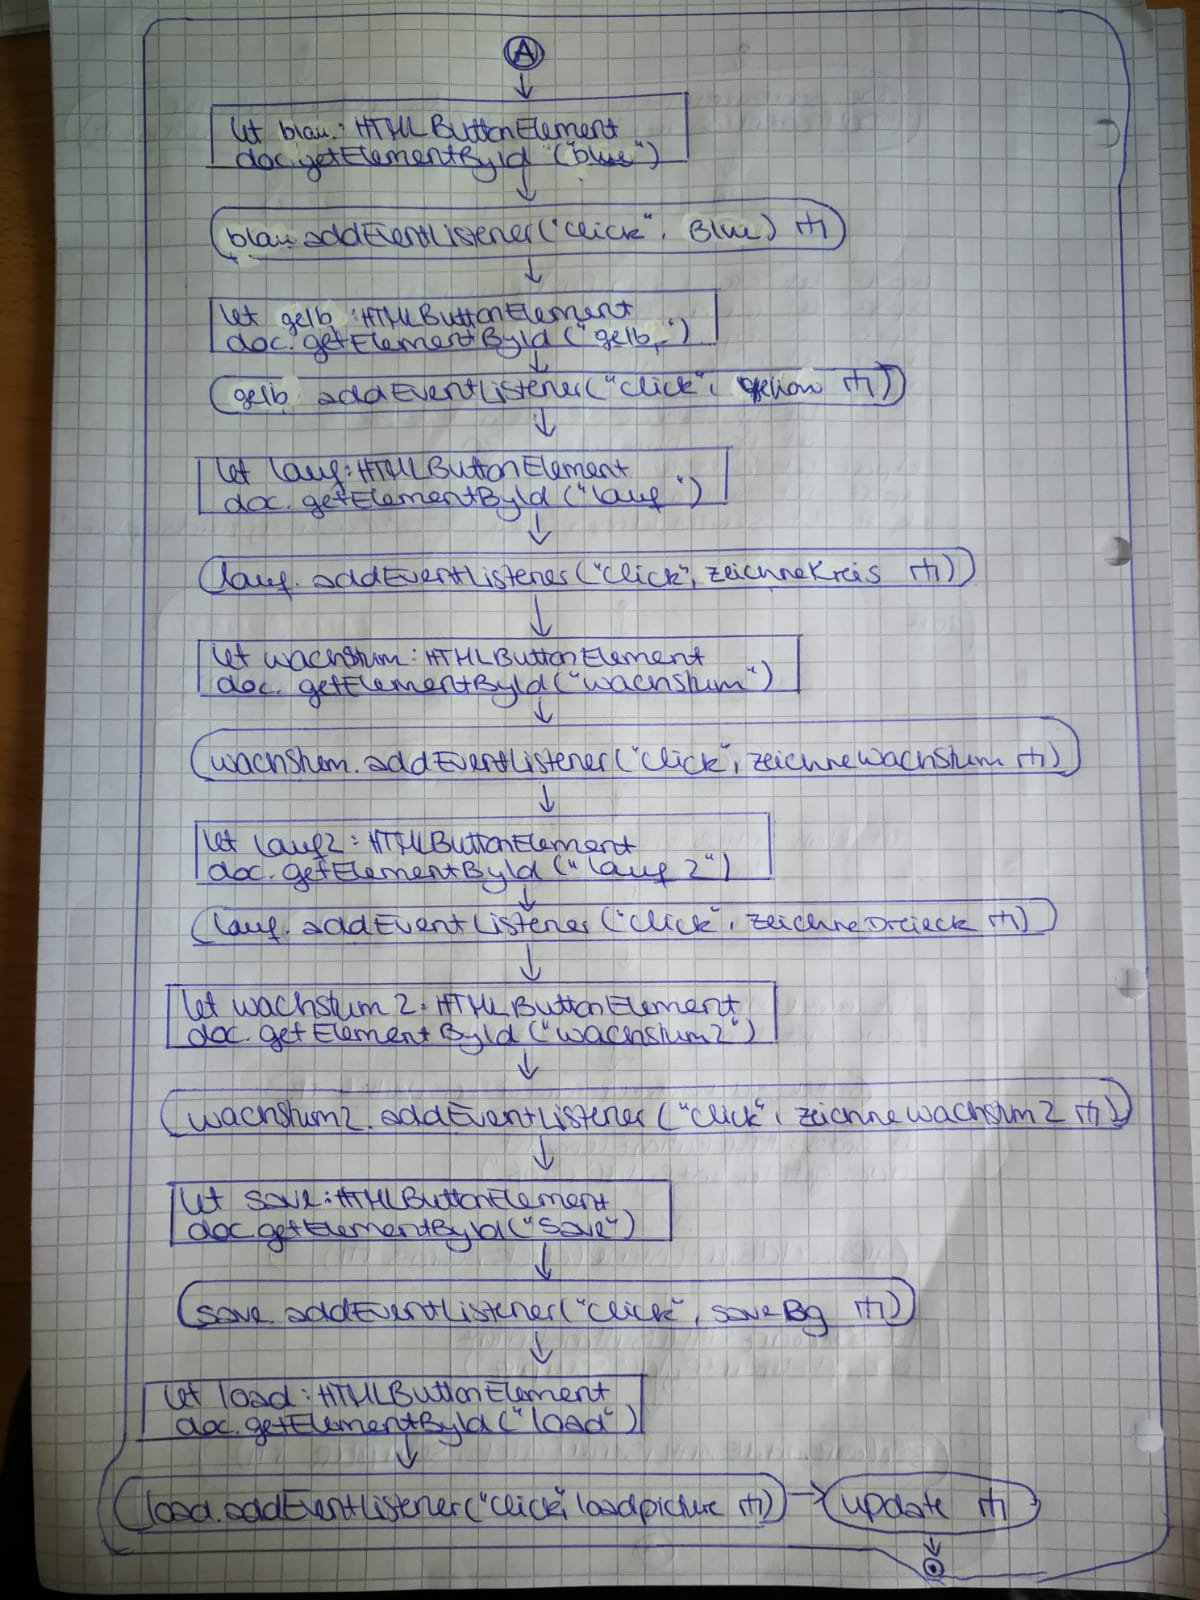 A
let blau: HTMLButtonElement
doc.getElementById ("blue")
blau.addEventListener("click", Blue)
let gelb :HTMLButtonElement
doc.getElementById ("gelb")
gelb addEventListener("click", yellow )
let lauf: HTMLButtonElement
doc.getElementById ("lauf")
lauf.addEventListener("click", zeichneKreis )
let wachstum: HTMLButtonElement
doc.getElementById("wachstum")
wachstum.addEventListener("click", zeichneWachstum )
let lauf2: HTMLButtonElement
doc.getElementById ("lauf 2")
lauf.addEventListener ("click", zeichneDreieck )
let wachstum 2: HTMLButtonElement
doc.getElementById ("wachstum2")
wachstum2.addEventListener ("click", zeichneWachstum 2 )
let save: HTMLButtonElement
doc.getElementById("save")
save addEventListener("click", saveBg )
let load: HTMLButtonElement
doc.getElementById ("load")
load.addEventListener("click", loadpicture )
update